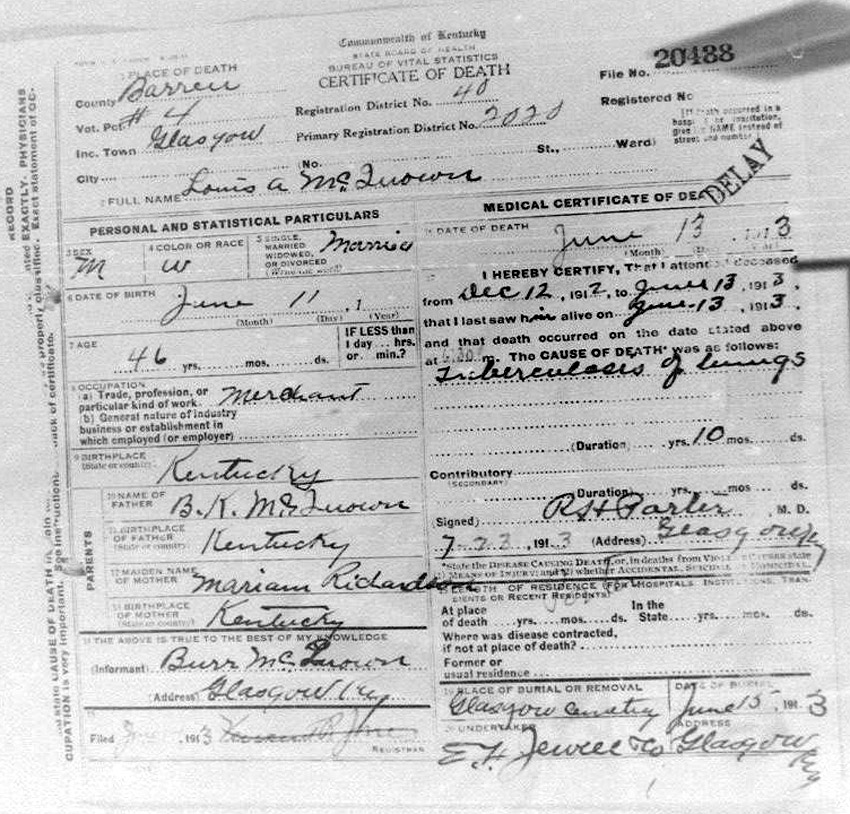 Commonwealth of Kentucky
STATE BOARD OF HEALTH
BUREAU OF VITAL STATISTICS
CERTIFICATE OF DEATH
File No. 20488
Registered No
1 PLACE OF DEATH
County Barren
Vot. Pct. # 4
Inc. Town Glasgow
City
Registration District No. 40
Primary Registration District No. 2020
(No. St., Ward)
[If death occurred in a
hospital or institution,
give its NAME instead of
street and number.]
2 FULL NAME Louis A McQuown
DELAY
PERSONAL AND STATISTICAL PARTICULARS
3 SEX
M
4 COLOR OR RACE
W
5 SINGLE,
MARRIED
WIDOWED,
OR DIVORCED
(Write the word)
Married
6 DATE OF BIRTH
June 11, 1
(Month) (Day) (Year)
7 AGE
46 yrs. mos. ds.
IF LESS than
1 day... hrs.
or min.?
8 OCCUPATION
(a) Trade, profession, or
particular kind of work. Merchant
(b) General nature of industry
business or establishment in
which employed (or employer)
9 BIRTHPLACE
(State or country)
Kentucky
PARENTS
10 NAME OF
FATHER
B. K. McQuown
11 BIRTHPLACE
OF FATHER
(State or country)
Kentucky
12 MAIDEN NAME
OF MOTHER
Mariam Richardson
13 BIRTHPLACE
OF MOTHER
(State or country)
Kentucky
THE ABOVE IS TRUE TO THE BEST OF MY KNOWLEDGE
(Informant) Burr McQuown
(Address) Glasgow Ky
Filed , 1913
REGISTRAR
MEDICAL CERTIFICATE OF DEA
DATE OF DEATH
June 13 1913
(Month)
I HEREBY CERTIFY, That I attended deceased
from Dec 12, 1912, to June 13, 1913,
that I last saw him alive on June 13, 1913,
and that death occurred on the date stated above
at m. The CAUSE OF DEATH* was as follows:
Tuberculoses of lungs
(Duration) yrs. 10 mos. ds.
Contributory
(SECONDARY)
(Duration) yrs. mos ds.
(Signed) M. D.
7-23, 1913 (Address) Glasgow Ky
*State the DISEASE CAUSING DEATH, or, in deaths from state
MEANS OF INJURY; and (2) whether ACCIDENTAL, SUICIDAL
LENGTH OF RESIDENCE (FOR HOSPITALS INSTITUTIONS, TRAN-
SIENTS OR RECENT RESIDENTS)
At place
of death yrs. mos. ds.
In the
State yrs. mos. ds.
Where was disease contracted,
if not at place of death?
Former or
usual residence
PLACE OF BURIAL OR REMOVAL
Glasgow Cemetry
DATE OF BURIAL
June 15, 1913
UNDERTAKER
E. H. Jewell & Co
ADDRESS
Glasgow Ky